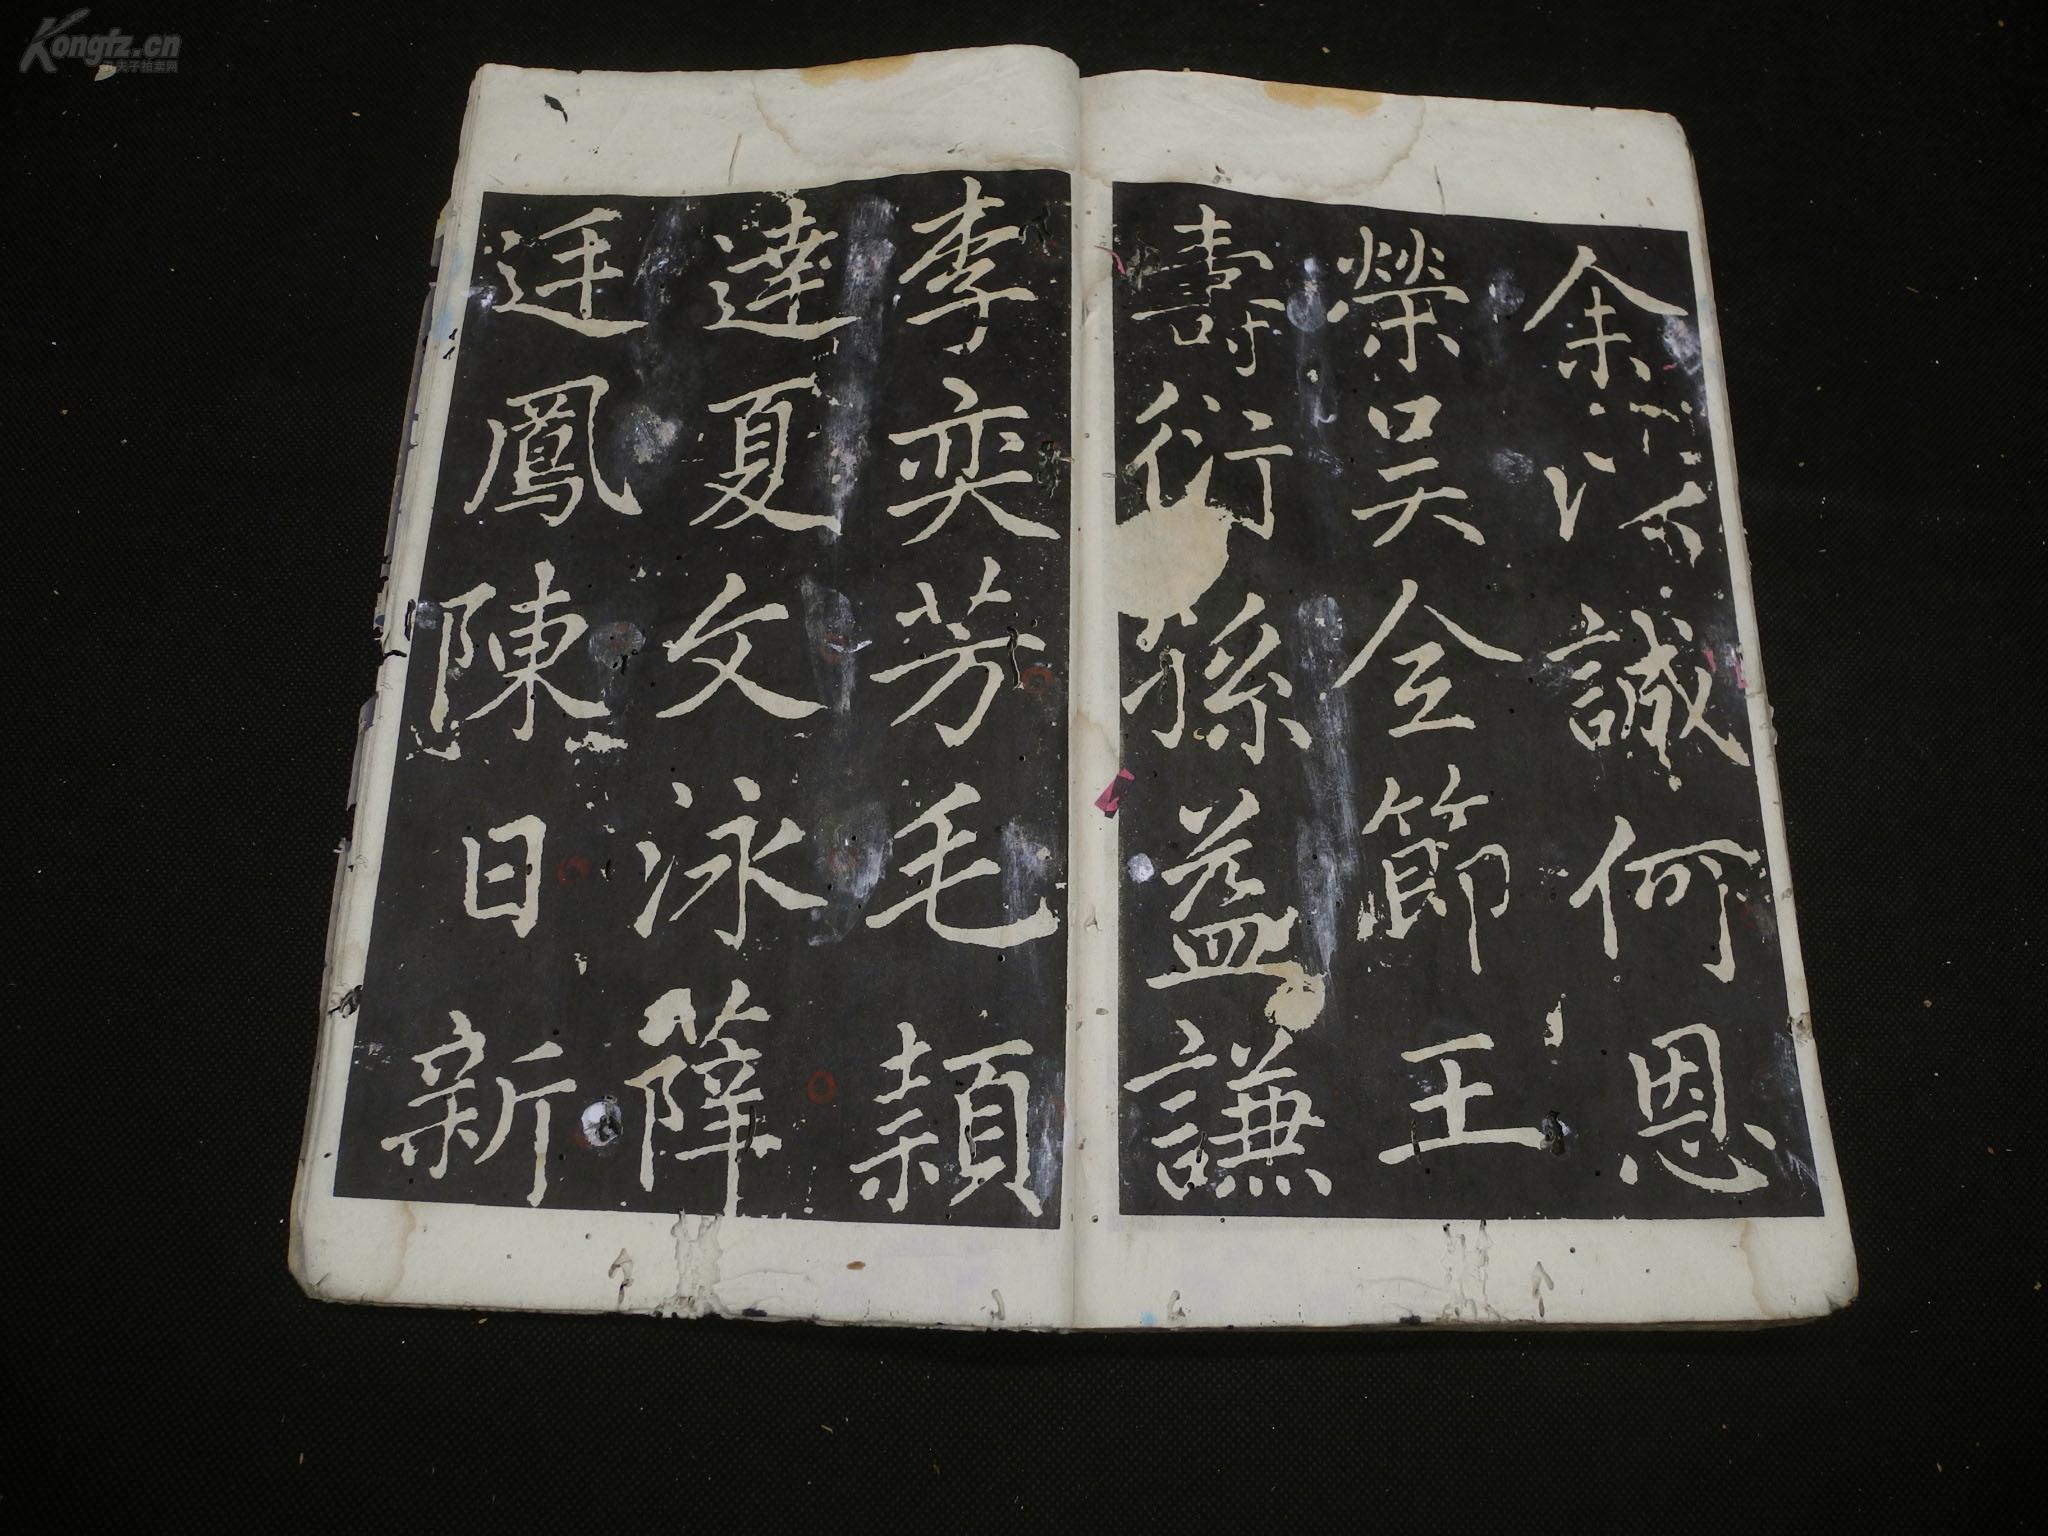 余誠何恩
榮吴全節王
壽衍孫益謙
李奕芳毛穎
達夏文泳薛
廷鳳陳日新
Kongfz.cn
孔夫子拍卖网